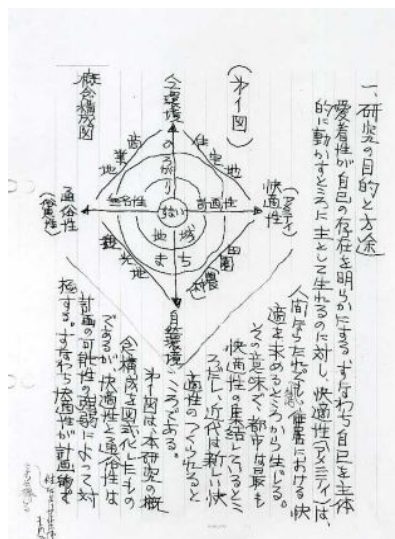 一、研究の目的と方途
愛着性が自己の存在を明らかにする、すなわち自己を主体
的に動かすところに主として生れるのに対し、快適性(アメニティ)は、
人間ならだれでも、住居における快
適を求めるところから生じる。
その意味で、都市は最も
快適性の集結しているところ
だし、近代は新しい快
適性のつくられると
ころである。
オ1図は、本研究の概
念構成を図式化したもの
であるが、快適性と通俗性は
計画の可能性の強弱によって対
極する。すなわち快適性が計画
(オ1図)
人工環境
住宅地
商業地
ひろがり
快適性
(アメニティ)
計画性
無名性
通俗性
(俗悪性)
地域
まち
田園
(農村)
観光地
自然環境
概念構成図